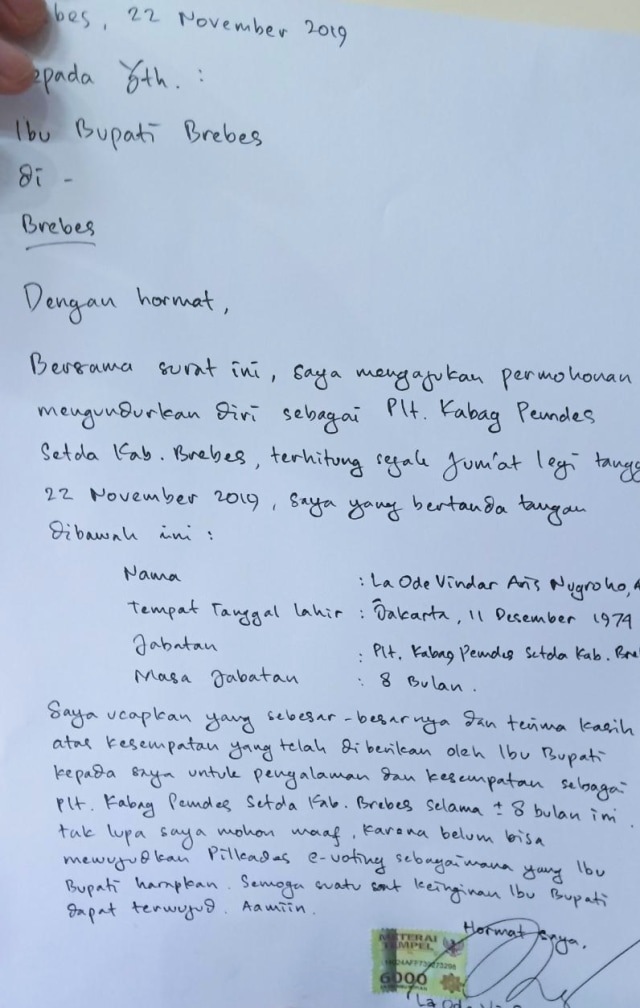 bes, 22 November 2019
epada Yth. :
Ibu Bupati Brebes
di -
Brebes
Dengan hormat,
Bersama surat ini, saya mengajukan permohonan
mengundurkan diri sebagai Plt. Kabag Pemdes
Setda Kab. Brebes, terhitung sejak Jum'at legi tangg
22 November 2019, saya yang bertanda tangan
dibawah ini :
Nama : La Ode Vindar Aris Nugroho, A
Tempat Tanggal lahir : Jakarta, 11 Desember 1974
Jabatan : Plt. Kabag Pemdes Setda Kab. Bre
Masa Jabatan : 8 Bulan.
Saya ucapkan yang sebesar-besarnya dan terima kasih
atas kesempatan yang telah diberikan oleh Ibu Bupati
kepada saya untuk pengalaman dan kesempatan sebagai
Plt. Kabag Pemdes Setda Kab. Brebes selama ± 8 bulan ini.
tak lupa saya mohon maaf, karena belum bisa
mewujudkan Pilkades e-voting sebagaimana yang Ibu
Bupati harapkan. Semoga suatu saat keinginan Ibu Bupati
dapat terwujud. Aamiin.
Hormat saya.
METERAI
TEMPEL
6000
La Ode